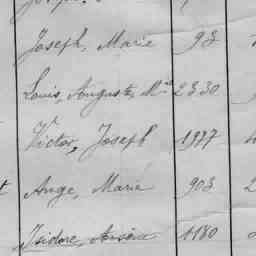 Joseph, Marie 93
Louis, Auguste, Mie 2330
Victor, Joseph 1937
Ange, Marie 903
Isidore, Arsène 1180